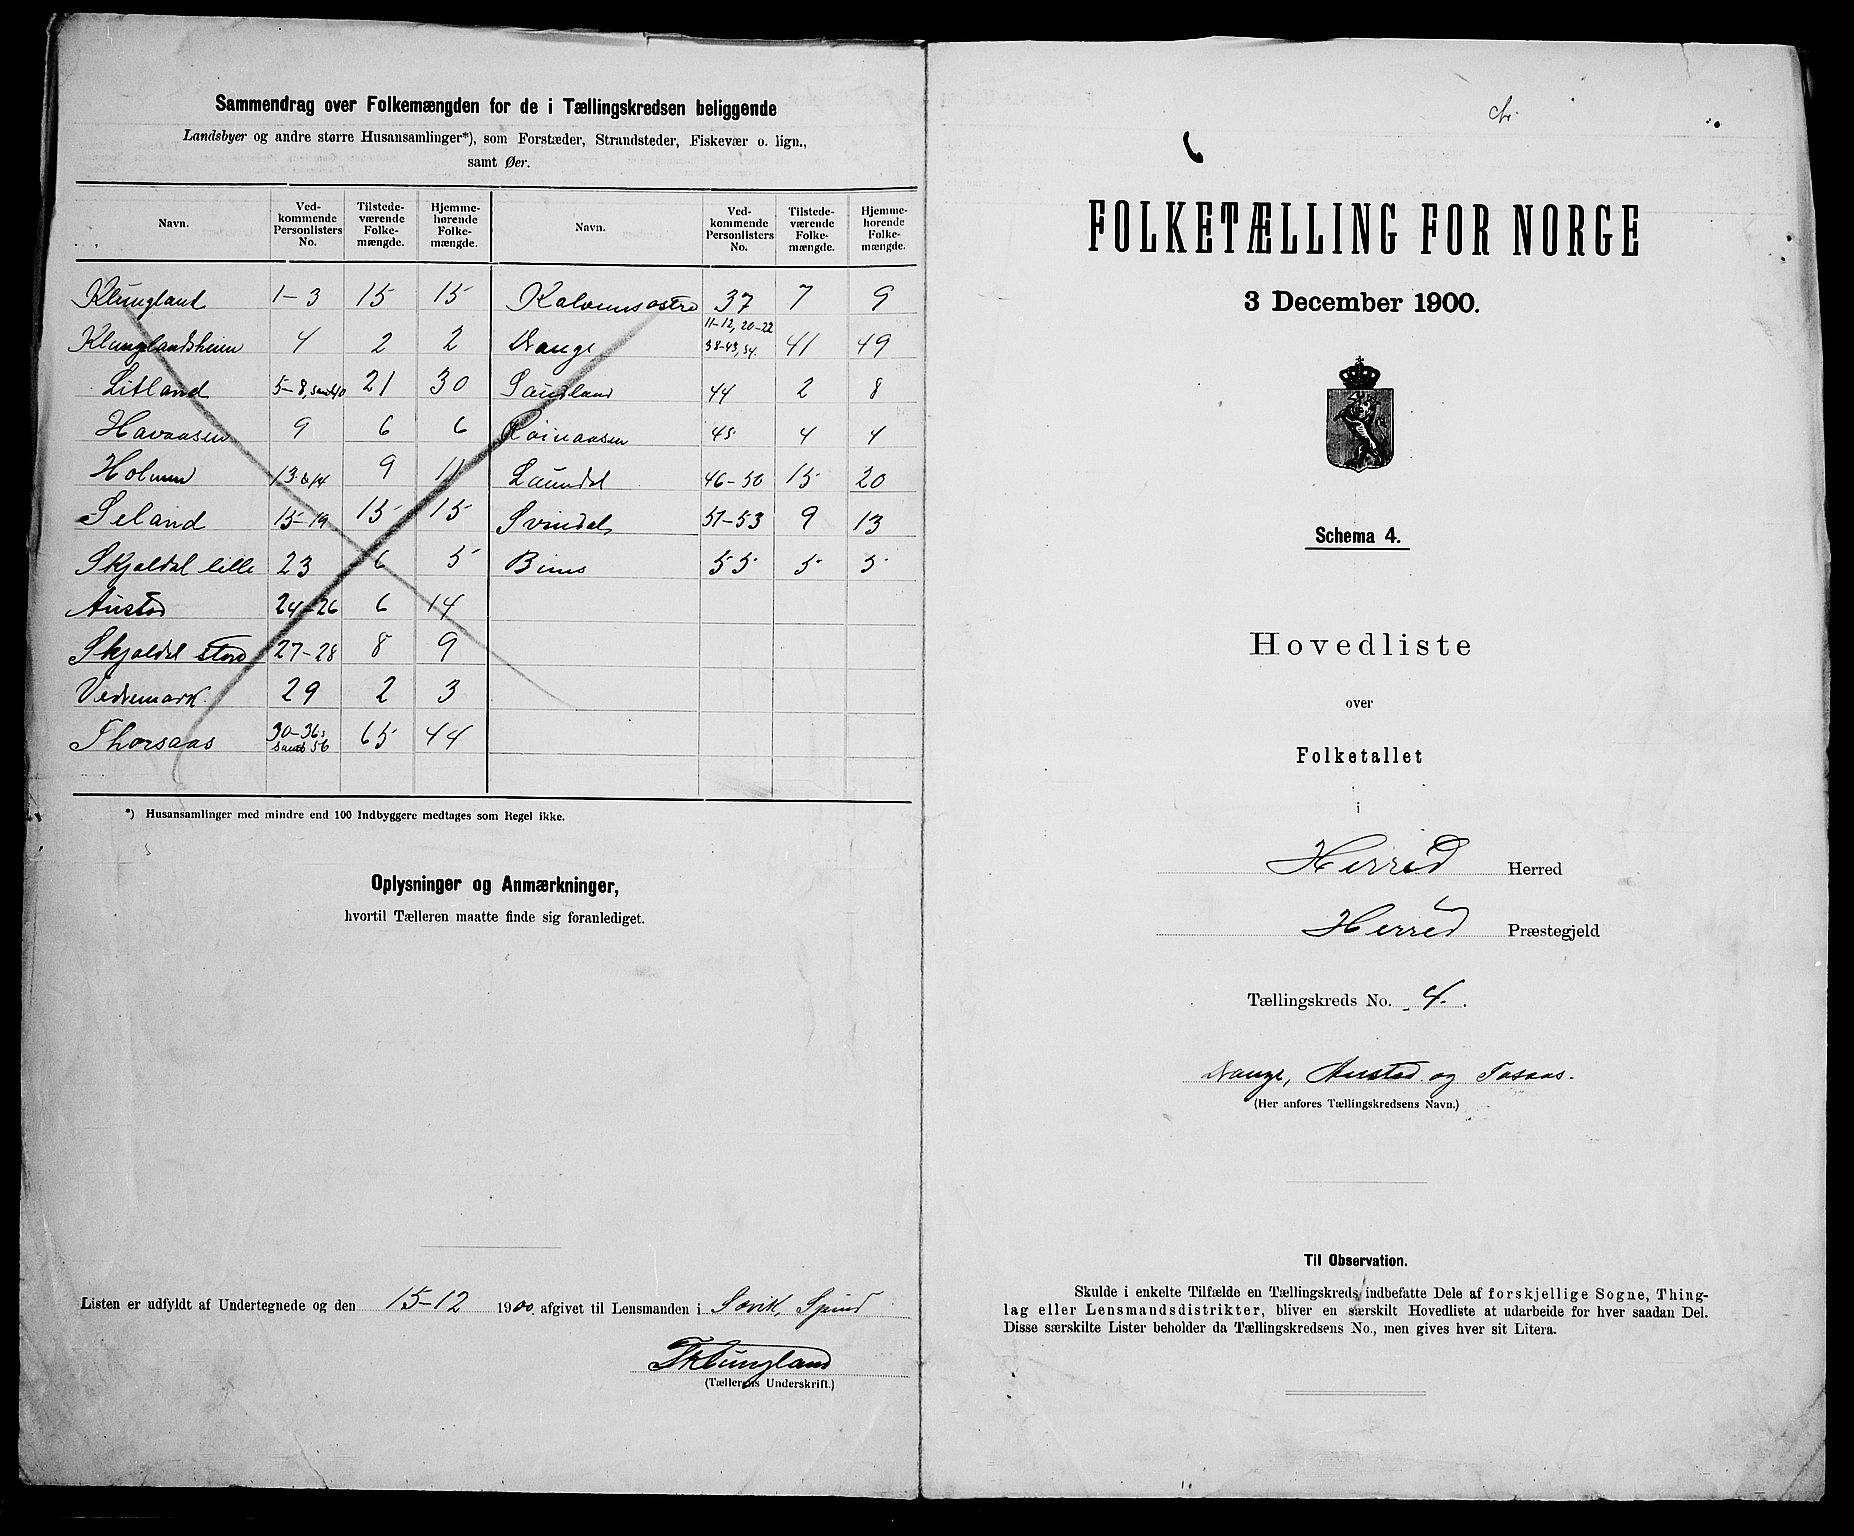 Sammendrag over Folkemængden for de i Tællingskredsen beliggende
Landsbyer og andre større Husansamlinger*), som Forstæder, Strandsteder, Fiskevær o. lign.,
samt Øer.
Navn. Ved-kommende Personlisters No. Tilstede-værende Folke-mængde. Hjemme-hørende Folke-mængde. Navn. Ved-kommende Personlisters No. Tilstede-værende Folke-mængde. Hjemme-hørende Folke-mængde.
Klungland 1-3 15 15 37 7 9
Klunglandsheien 4 2 2 Drange 11-12, 20-22 38-43, 54. 41 49
Litland 5-8, samt 10 21 30 Saudland 44 2 8
Havaasen 9 6 6 Röinaasen 45 4 4
Holmen 13 & 14 9 11 46-50 15 20
Seland 15-19 15 15 Svindal 51-53 9 13
Skjoldal lille 23 6 5 55 5 5
Austad 24-26 6 14
Skjoldal store 27-28 8 9
Vedremark 29 2 3
Thorsaas 30-36, samt 56 65 44
*) Husansamlinger med mindre end 100 Indbyggere medtages som Regel ikke.
Oplysninger og Anmærkninger,
hvortil Tælleren maatte finde sig foranlediget.
Listen er udfyldt af Undertegnede og den 15-12 1900 afgivet til Lensmanden i Sævik, Spind
T Klungland
(Tællerens Underskrift.)
6
FOLKETÆLLING FOR NORGE
3 December 1900.
Schema 4.
Hovedliste
over
Folketallet
i
Herred Herred
Herred Præstegjeld
Tællingskreds No. 4.
Drange, Austad og Tosaas.
(Her anføres Tællingskredsens Navn.)
Til Observation.
Skulde i enkelte Tilfælde en Tællingskreds indbefatte Dele af forskjellige Sogne, Thing-
lag eller Lensmandsdistrikter, bliver en særskilt Hovedliste at udarbeide for hver saadan Del.
Disse særskilte Lister beholder da Tællingskredsens No., men gives hver sit Litera.